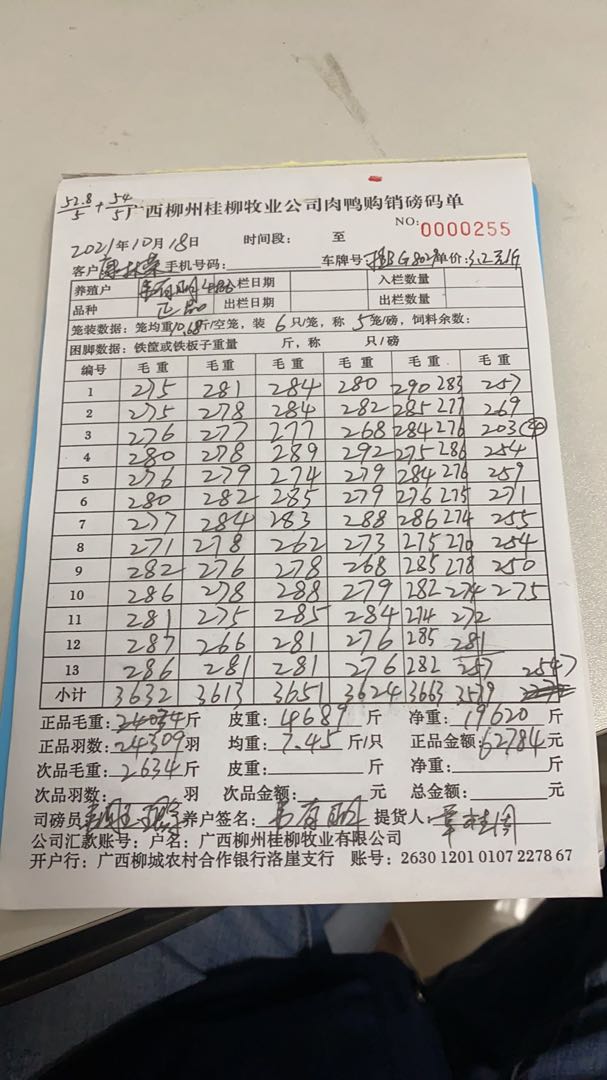 52.8/5 + 54/5
广西柳州桂柳牧业公司肉鸭购销磅码单
NO: 0000255
2021年10月18日 时间段: 至
客户 手机号码: 车牌号: 单价: 3.2元/斤
养殖户 入栏日期 入栏数量
品种 正品 出栏日期 出栏数量
笼装数据: 笼均重10.68斤/空笼, 装 6 只/笼, 称 5 笼/磅, 饲料余数:
困脚数据: 铁筐或铁板子重量 斤, 称 只/磅
编号 毛重 毛重 毛重 毛重 毛重 毛重
1 275 281 284 280 290 283 257
2 275 278 284 282 285 277 269
3 276 277 277 268 284 276 203 (4)
4 280 278 289 292 275 286 254
5 276 279 274 279 284 276 259
6 280 282 285 279 276 275 271
7 277 284 283 288 286 274 255
8 271 278 262 273 275 270 254
9 282 276 278 268 285 278 250
10 286 278 288 279 282 274 275
11 281 275 285 284 274 272
12 287 266 281 276 285 281
13 286 281 281 276 282 257 2547
小计 3632 3613 3651 3624 3663 3539
正品毛重: 24034斤 皮重: 4689斤 净重: 19620斤
正品羽数: 24309羽 均重: 7.45斤/只 正品金额: 62784元
次品毛重: 2634斤 皮重: 斤 净重: 斤
次品羽数: 羽 次品金额: 元 总金额: 元
司磅员: 养户签名: 韦有明 提货人: 覃桂周
公司汇款账号: 户名: 广西柳州桂柳牧业有限公司
开户行: 广西柳城农村合作银行洛崖支行 账号: 2630 1201 0107 2278 67